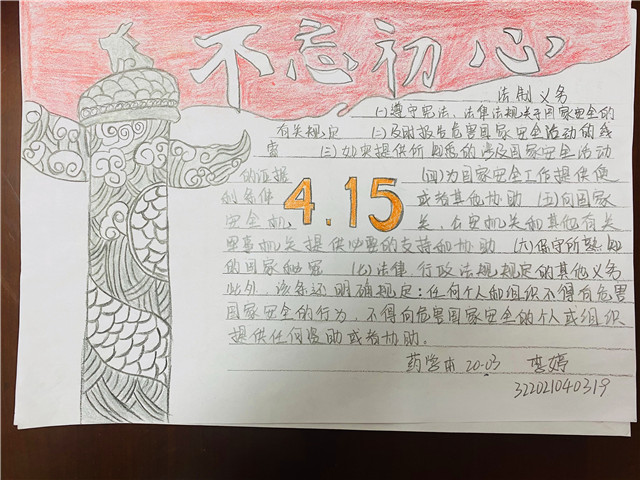 不忘初心
法制义务
(一)遵守宪法、法律法规关于国家安全的
有关规定 (二)及时报告危害国家安全活动的线
索 (三)如实提供所知悉的涉及国家安全活动
的证据 (四)为国家安全工作提供便
利条件 或者其他协助 (五)向国家
安全机 关、公安机关和其他有关
4.15
军事机关提供必要的支持和协助 (六)保守所知悉
的国家秘密 (七)法律、行政法规规定的其他义务
此外，该条还明确规定：任何个人和组织不得有危害
国家安全的行为，不得向危害国家安全的个人或组织
提供任何资助或者协助。
药学本 20-03 李婷
322021040319